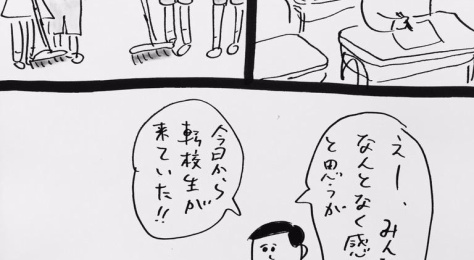 えー、みん
なんとなく感
と思うが
今日から
転校生が
来ていた!!